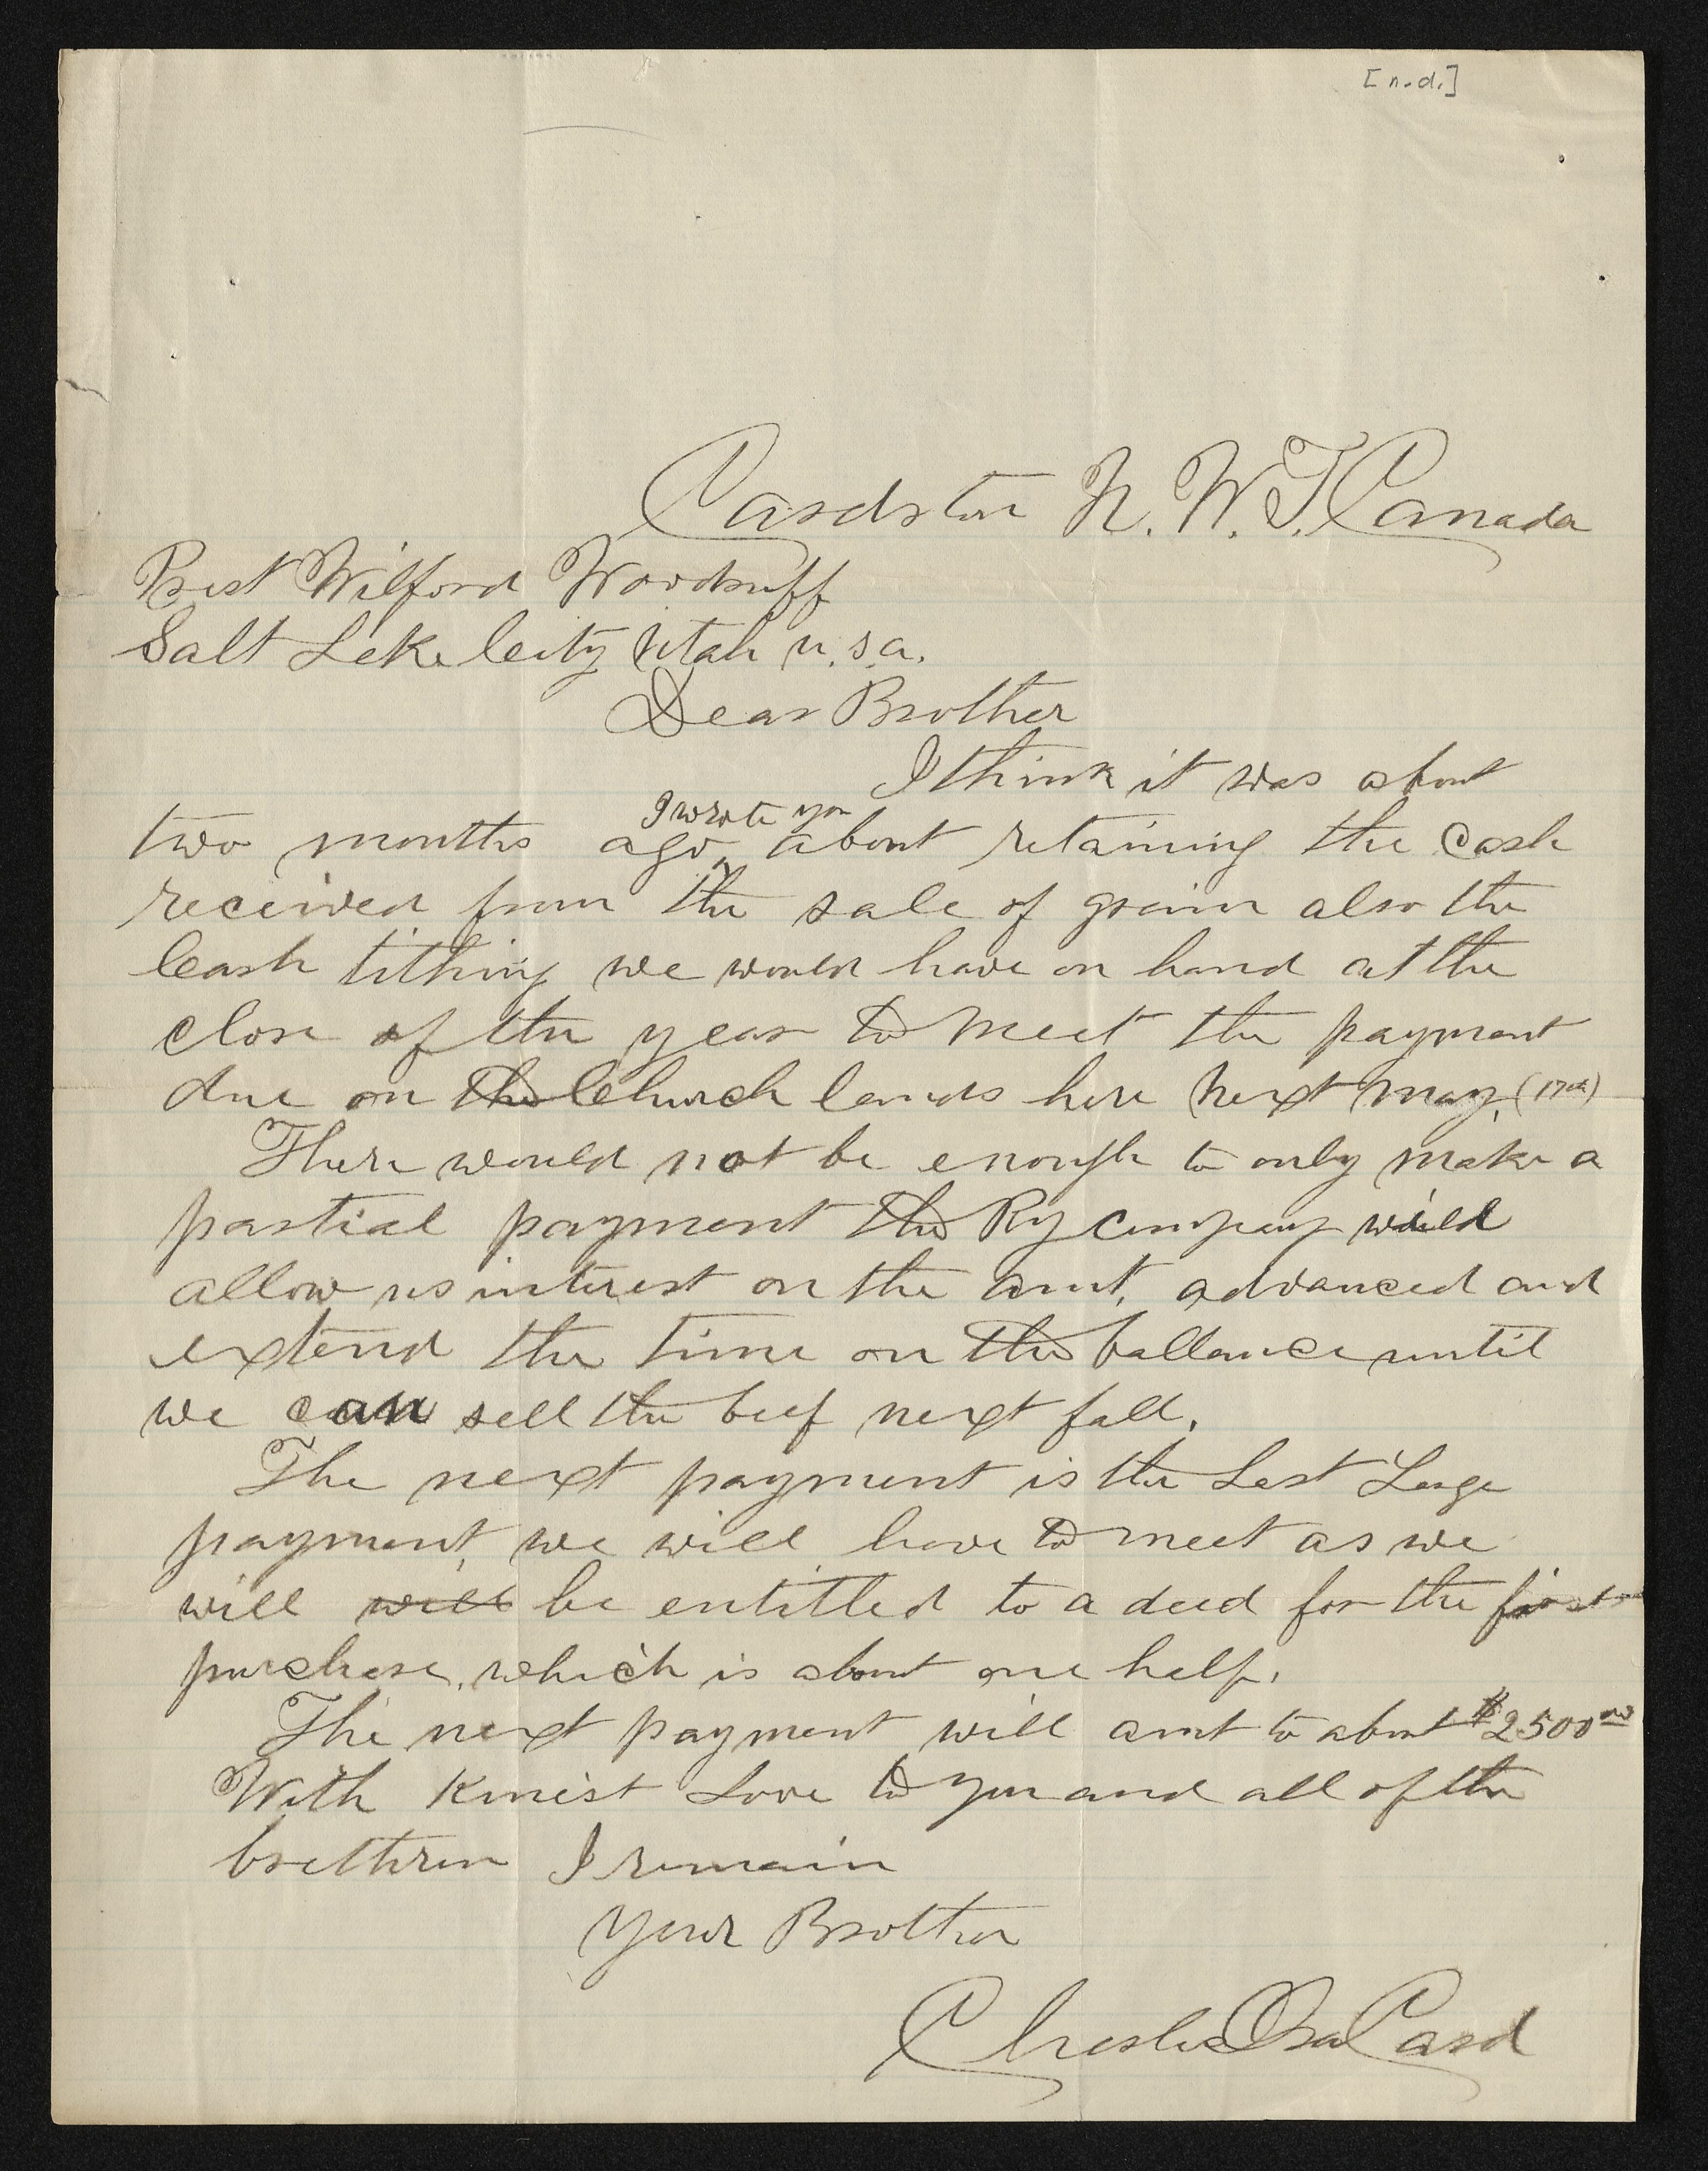 [n.d.]
Cardston N. W. T. Canada
Prest Wilford Woodruff
Salt Lake City Utah U.S.A.
Dear Brother
I think it was about
I wrote you
two months ago, about retaining the cash
received from the sale of grain also the
Cash tithing we would have on hand at the
close of the year to meet the payment
due on the Church lands here Next May, (17th)
There would not be enough to only make a
partial payment the Ry company would
allow us interest on the amt, advanced and
extend the time on the ballance until
we can sell the beef next fall.
The next payment is the Last Large
payment, we will have to meet as we
will will be entitled to a deed for the first
purchase, which is about one half.
The next payment will amt to about $2500 00
With Kinest Love to you and all of the
brethren I remain
Your Brother
Chester Ora Card